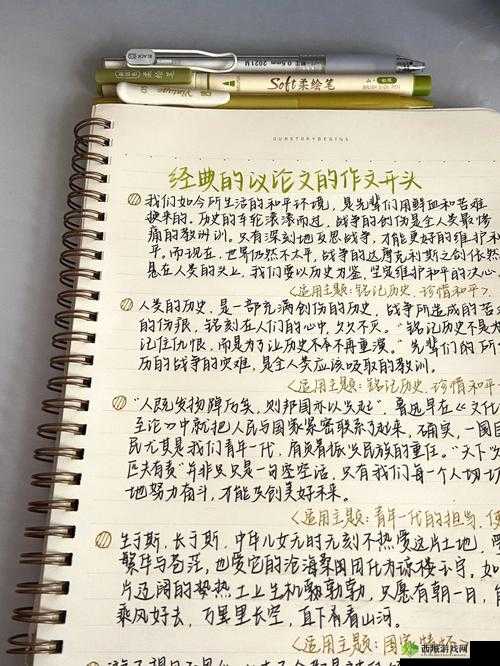 BLACK 0.5mm 2021M
Soft柔绘笔
Vintage
OURSTORYBEGINS
经典的议论文的作文开头
我们如今所生活的和平环境，是先辈们用鲜血和苦难
换来的。历史的车轮滚滚而过，战争的创伤是全人类最惨
痛的教训。只有深刻地反思战争，才能更好的维护和
平。而现在，世界仍然不太平，战争的达摩克利斯之剑依然
悬在人类的头上，我们要以历史为鉴，坚定维护和平的决心
<适用主题：铭记历史，珍惜和平>
人类的历史，是一部充满创伤的历史，战争所造成的苦
的伤痕，铭刻在人们的心中，久久不灭。"铭记历史不是为
记住仇恨，而是为了让历史不再重演。"先辈们的所
历的战争的灾难，是全人类应该吸取的教训。
<适用主题：铭记历史，珍惜和平
"人既发扬踔厉矣，则邦国亦以兴起"，鲁迅早在《文化
至论》中就把人民与国家紧密联系了起来，确实，一国
民尤其是我们青年一代，肩负着振兴民族的重任。"天下
匹夫有责"并非只是一句空空话，只有我们每一个人切切
地努力奋斗，才能共创美好未来。
<适用主题：青年一代的担当，
生于斯，长于斯，中华儿女无时无刻不热爱这片土地，
繁华与苍茫，也爱它的沧海桑田
片辽阔的
土上生机勃勃，只愿有朝一日，
乘风好去，万里长空，直下看山河。
<适用主题：国家情怀>
西城游戏网